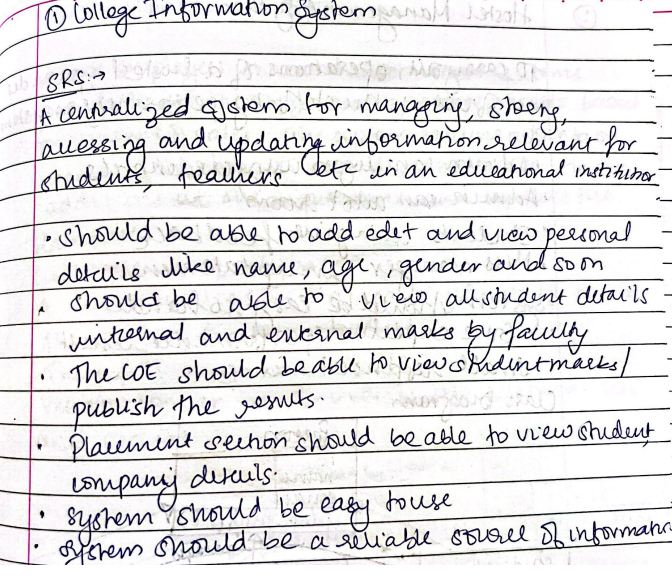 ① College Information System
SRS:→
A centralized system for managing, storing,
accessing and updating information relevant for
students, teachers etc in an educational institution
• should be able to add edit and view personal
details like name, age, gender and so on
• should be able to view all student details
internal and external marks by faculty
• The COE should be able to view student marks/
publish the results.
• Placement section should be able to view student,
company details.
• System should be easy to use
• System should be a reliable source of informatio